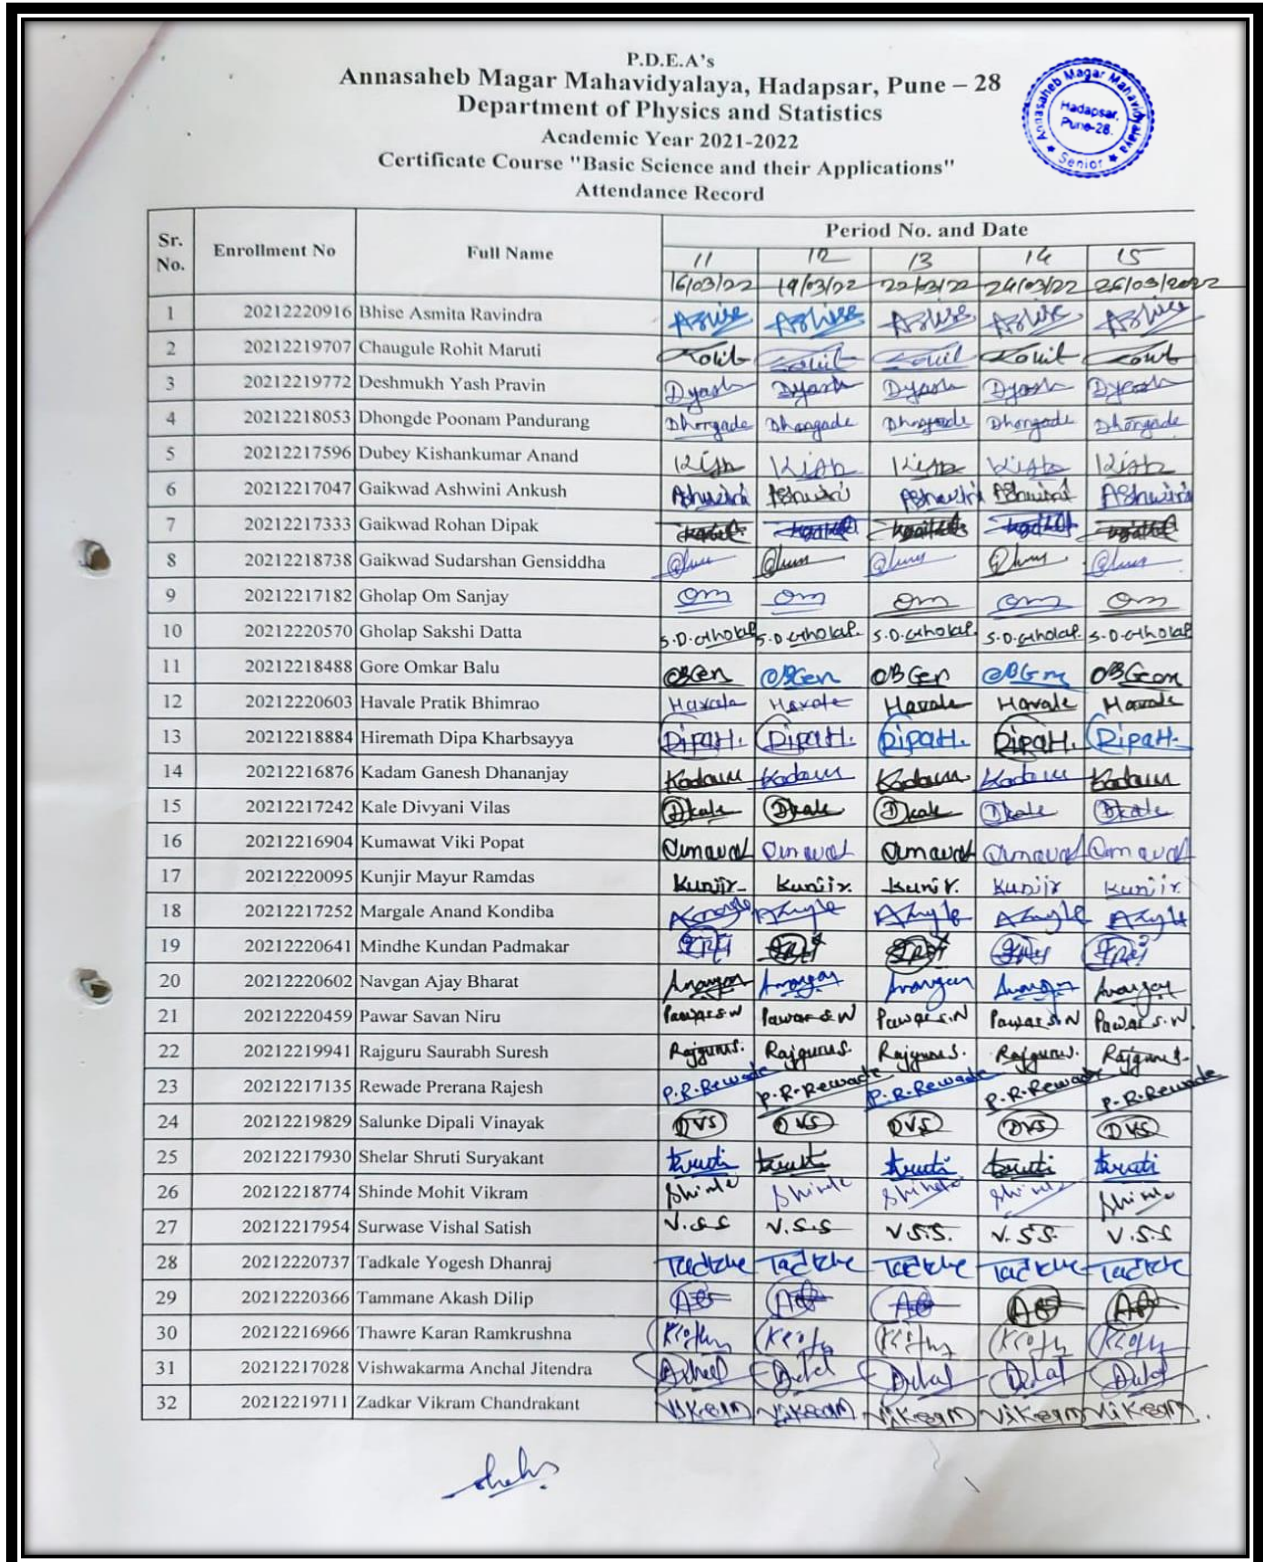 P.D.E.A's
Annasaheb Magar Mahavidyalaya, Hadapsar, Pune – 28
Department of Physics and Statistics
Academic Year 2021-2022
Certificate Course "Basic Science and their Applications"
Attendance Record
Annasaheb Magar Mahavidyalaya
Hadapsar,
Pune-28.
★ Senior ★
Sr. No. Enrollment No Full Name Period No. and Date
11 12 13 14 15
16/03/22 19/03/22 22/03/22 24/03/22 26/03/2022
1 20212220916 Bhise Asmita Ravindra
2 20212219707 Chaugule Rohit Maruti
3 20212219772 Deshmukh Yash Pravin Dyash Dyash Dyash Dyash Dyash
4 20212218053 Dhongde Poonam Pandurang Dhongade Dhongade Dhongade Dhongade Dhongade
5 20212217596 Dubey Kishankumar Anand
6 20212217047 Gaikwad Ashwini Ankush Ashwini Ashwini Ashwini Ashwini Ashwini
7 20212217333 Gaikwad Rohan Dipak
8 20212218738 Gaikwad Sudarshan Gensiddha
9 20212217182 Gholap Om Sanjay Om Om Om Om Om
10 20212220570 Gholap Sakshi Datta S.D.Gholap. S.D.Gholap. S.D.Gholap. S.D.Gholap. S.D.Gholap
11 20212218488 Gore Omkar Balu
12 20212220603 Havale Pratik Bhimrao Havale Havale Havale Havale Havale
13 20212218884 Hiremath Dipa Kharbsayya DipaH. DipaH. DipaH. DipaH. DipaH.
14 20212216876 Kadam Ganesh Dhananjay Kadam Kadam Kadam Kadam Kadam
15 20212217242 Kale Divyani Vilas Dkale Dkale Dkale Dkale Dkale
16 20212216904 Kumawat Viki Popat
17 20212220095 Kunjir Mayur Ramdas Kunjir Kunjir. Kunjir. Kunjir Kunjir.
18 20212217252 Margale Anand Kondiba
19 20212220641 Mindhe Kundan Padmakar
20 20212220602 Navgan Ajay Bharat
21 20212220459 Pawar Savan Niru Pawar S.N Pawar S.N Pawar S.N Pawar S.N Pawar S.N.
22 20212219941 Rajguru Saurabh Suresh Rajguru S. Rajguru S. Rajguru S. Rajguru S. Rajguru S.
23 20212217135 Rewade Prerana Rajesh P.R.Rewade P.R.Rewade P.R.Rewade P.R.Rewade P.R.Rewade
24 20212219829 Salunke Dipali Vinayak DVS DVS DVS DVS DVS
25 20212217930 Shelar Shruti Suryakant
26 20212218774 Shinde Mohit Vikram Shinde Shinde Shinde Shinde Shinde
27 20212217954 Surwase Vishal Satish V.S.S V.S.S V.S.S. V.S.S. V.S.S
28 20212220737 Tadkale Yogesh Dhanraj
29 20212220366 Tammane Akash Dilip
30 20212216966 Thawre Karan Ramkrushna
31 20212217028 Vishwakarma Anchal Jitendra
32 20212219711 Zadkar Vikram Chandrakant Vikram Vikram Vikram Vikram Vikram.